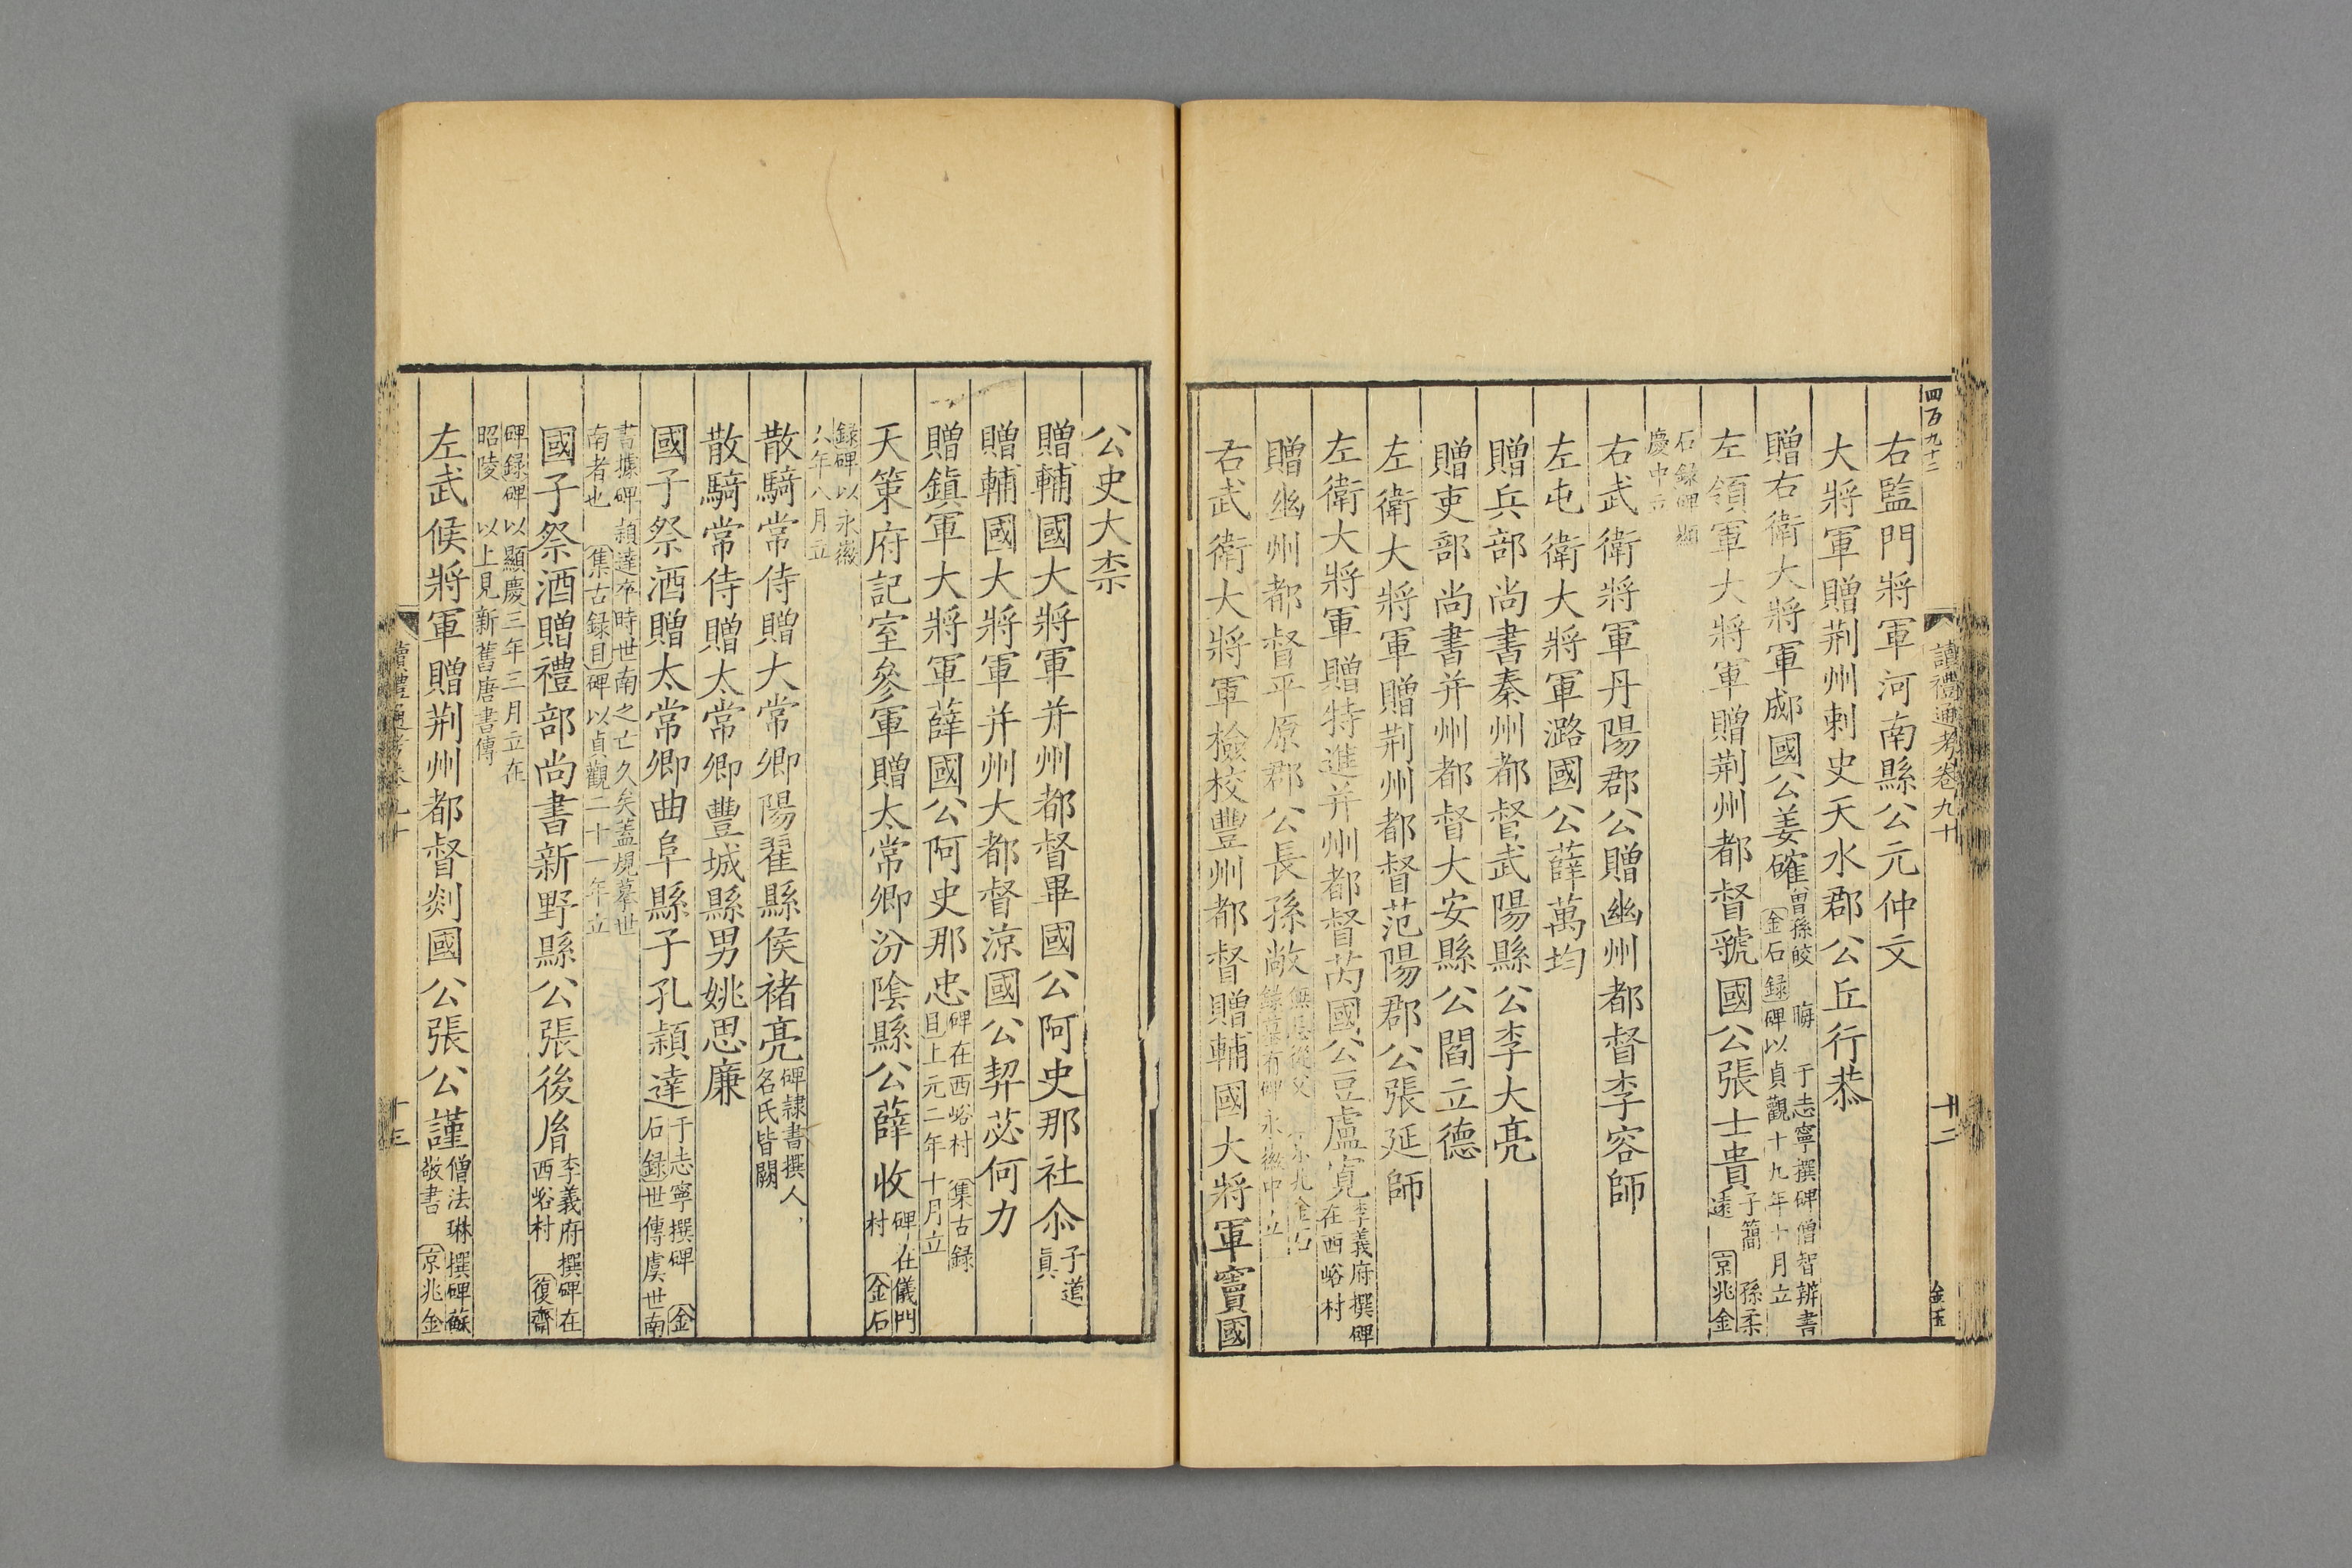 四百九十二
讀禮通考卷九十
十二
金玉
右監門將軍河南縣公元仲文
大將軍贈荆州刺史天水郡公丘行恭
贈右衛大將軍郕國公姜確曾孫皎 晦 于志寧撰碑僧智辨書
金石録碑以貞觀十九年十月立
左領軍大將軍贈荆州都督虢國公張士貴子簡 孫柔
遠 京兆金
石錄碑顯
慶中立
右武衛將軍丹陽郡公贈幽州都督李容師
左屯衛大將軍潞國公薛萬均
贈兵部尚書秦州都督武陽縣公李大亮
贈吏部尚書并州都督大安縣公閻立德
左衛大將軍贈荆州都督范陽郡公張延師
左衛大將軍贈特進并州都督芮國公豆盧寬李義府撰碑
在西峪村
贈幽州都督平原郡公長孫敞無忌從父 京兆金石
錄葬有碑永徽中立
右武衛大將軍檢校豐州都督贈輔國大將軍竇國
公史大柰
贈輔國大將軍并州都督畢國公阿史那社尒子道
真
贈輔國大將軍并州大都督涼國公契苾何力
贈鎮軍大將軍薛國公阿史那忠碑在西峪村 集古録
目上元二年十月立
天策府記室參軍贈太常卿汾陰縣公薛收碑在儀門
村 金石
録碑以永徽
六年八月立
散騎常侍贈大常卿陽翟縣侯褚亮碑隷書撰人
名氏皆闕
散騎常侍贈太常卿豐城縣男姚思廉
國子祭酒贈太常卿曲阜縣子孔穎達于志寧撰碑 金
石録世傳虞世南
書據碑穎達卒時世南之亡久矣蓋規摹世
南者也 集古録目碑以貞觀二十一年立
國子祭酒贈禮部尚書新野縣公張後胤李義府撰碑在
西峪村 復齋
碑録碑以顯慶三年三月立在
昭陵 以上見新舊唐書傳
左武候將軍贈荆州都督剡國公張公謹僧法琳撰碑蘇
敬書 京兆金
讀禮通考卷九十
十三